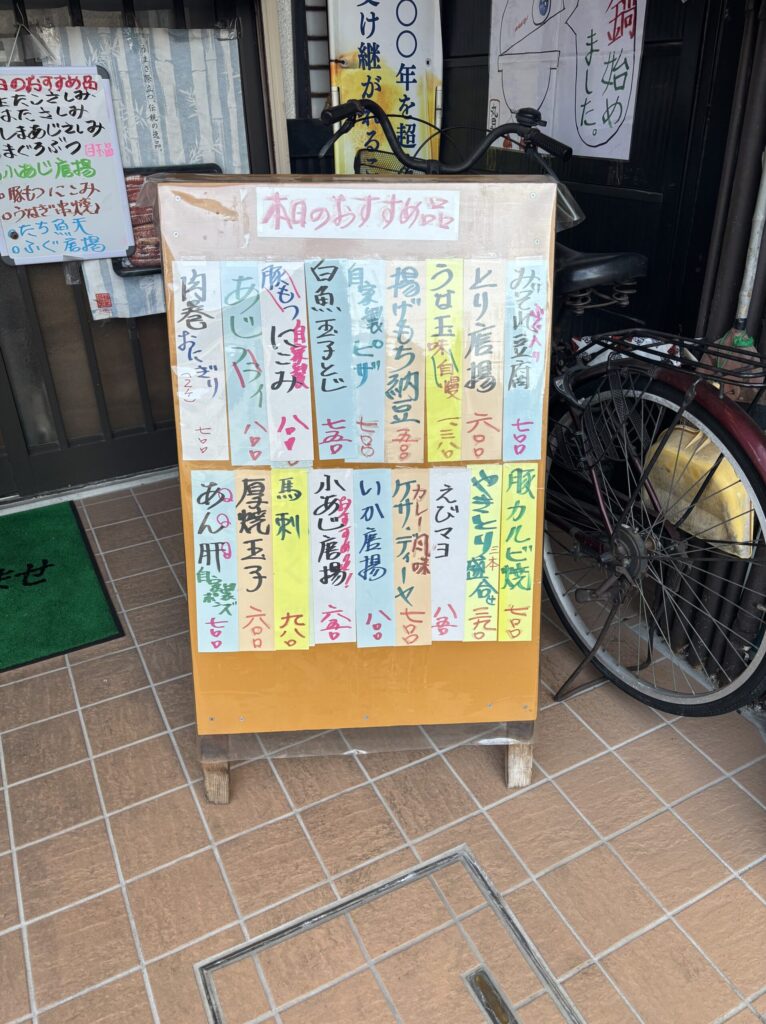 本日のおすすめ品
豆腐
ふぐ入り
七〇〇
とり唐揚
六〇〇
うせ玉
味自慢
一、三八〇
揚げもち納豆
五〇〇
自家製ピザ
七〇〇
白魚玉子とじ
七五〇
豚もつにこみ
自家製
八〇〇
あじフライ
八〇〇
肉巻おにぎり
(2ヶ)
七〇〇
豚カルビ焼
七〇〇
やきとり盛合せ
三本
三九〇
えびマヨ
八五〇
ケサディーヤ
カレー風味
七〇〇
いか唐揚
八〇〇
小あじ唐揚
おすすめ!
六五〇
馬刺
九八〇
厚焼玉子
六〇〇
あん肝
自家製ポンズ
七〇〇
日のおすすめ品
たこさしみ
はたさしみ
しまあじさしみ
まぐろぶつ
小あじ唐揚
豚もつにこみ
うなぎ串焼
たち魚天
ふぐ唐揚
〇〇年を超
受け継がれる
鍋始め
ました。
ませ